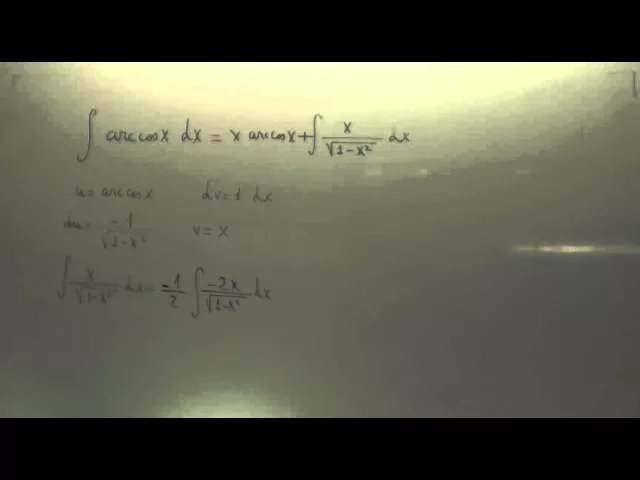 ∫ arccosx dx = x arccosx + ∫ x/√(1-x²) dx
u = arccosx dv = 1 dx
du = -1/√(1-x²) v = x
∫ x/√(1-x²) dx = -1/2 ∫ -2x/√(1-x²) dx